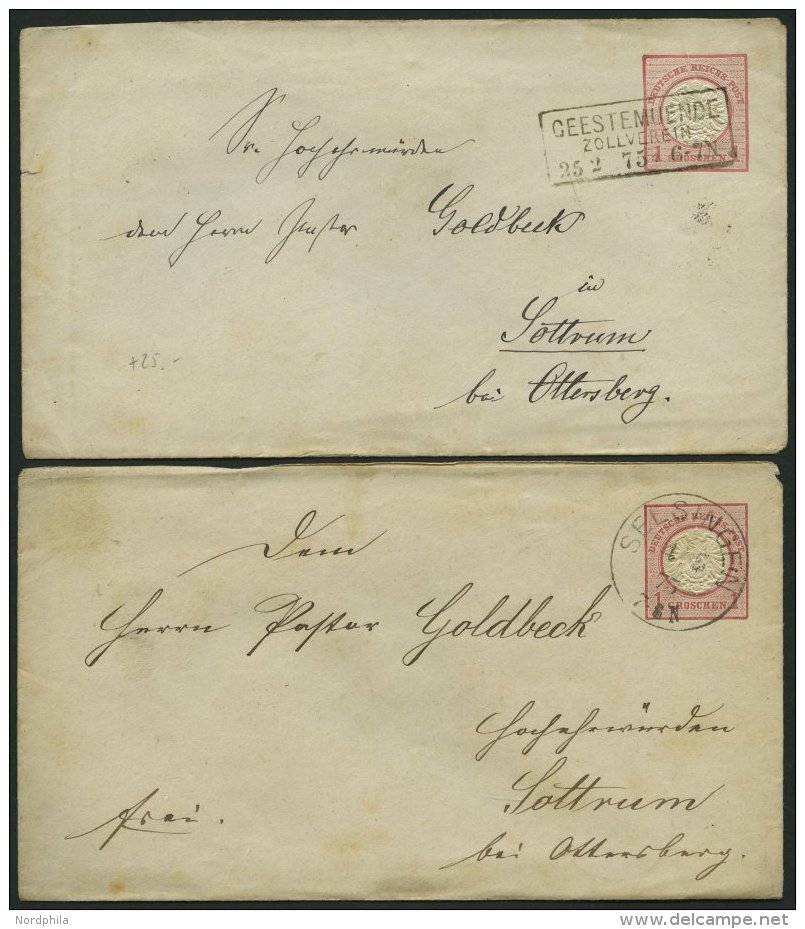 DEUTSCHE REICHS-POST
1 GROSCHEN 1
GEESTEMUENDE
ZOLLVEREIN
25 2 75 6-7N
Sr. Hochehrwürden
dem Herrn Pastor Goldbeck
in
Sottrum
bei Ottersberg.
+25.-
SELSINGEN
DEUTSCHE REICHS-POST
GROSCHEN
Dem
Herrn Pastor Goldbeck
Hochehrwürden
Sottrum
frei.
bei Ottersberg.
Nordphila
www.delcampe.net